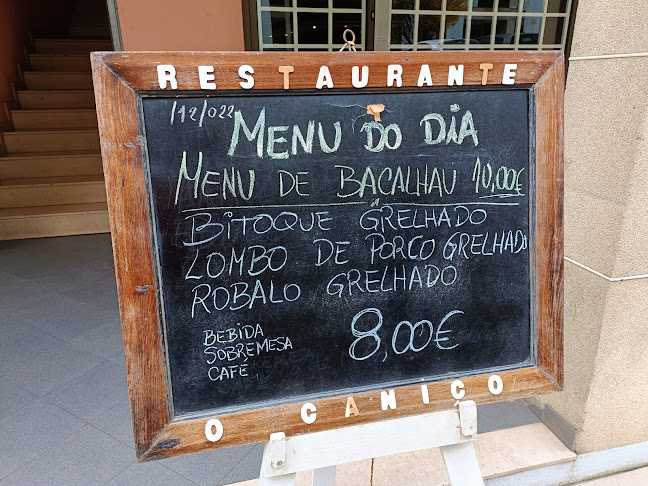 RESTAURANTE
/12/022
MENU DO DIA
MENU DE BACALHAU 10,00€
BITOQUE GRELHADO
LOMBO DE PORCO GRELHADO
ROBALO GRELHADO
BEBIDA
SOBREMESA
CAFÉ
8,00€
O CANIÇO